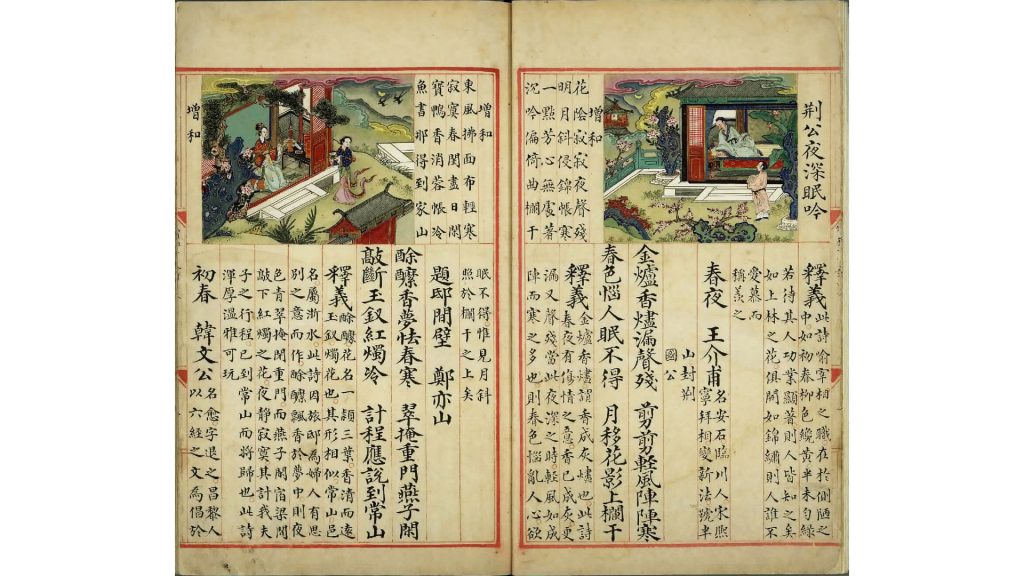 荆公夜深眠吟
增和
花陰寂寂夜聲殘
明月斜侵錦帳寒
一點芳心無處著
沉吟偏倚曲欄干
釋義 此詩喻宰相之職在於側陋之
中如初春柳色纔黃半未勻綠
若待其人功業顯著則人皆知之矣
如上林之花俱開如錦繡則人誰不
愛慕而
稱羨之
春夜 王介甫 名安石臨川人宋熙
寧拜相變新法號半
山封荆
國公
金爐香燼漏聲殘 翦翦輕風陣陣寒
春色惱人眠不得 月移花影上欄干
釋義 金爐香燼謂香成灰燼也此詩
春夜有傷情之意香已成灰更
漏又聲殘當此夜深之時輕風如成
陣而寒之多也則春色惱亂人心欲
增和
東風拂面布輕寒
寂寞春閨盡日閒
寶鴨香消蓉帳冷
魚書那得到家山
增和
眠不得惟見月斜
照於欄干之上矣
題邸間壁 鄭亦山
酴醿香夢怯春寒 翠掩重門燕子閒
敲斷玉釵紅燭冷 計程應說到常山
釋義 酴醿花名一穎三葉香清而遠
玉釵燭花也其形相似常山邑
名屬浙水此詩因旅邸為婦人有思
別之意而作酴醿飄香於夢中則夜
色青翠掩閉重門而燕子閣宿梁間
敲下紅燭之花夜靜寂寞其計我夫
子之行程已到常山而將歸也此詩
渾厚溫雅可玩
初春 韓文公 名愈字退之昌黎人
以六經之文為倡於